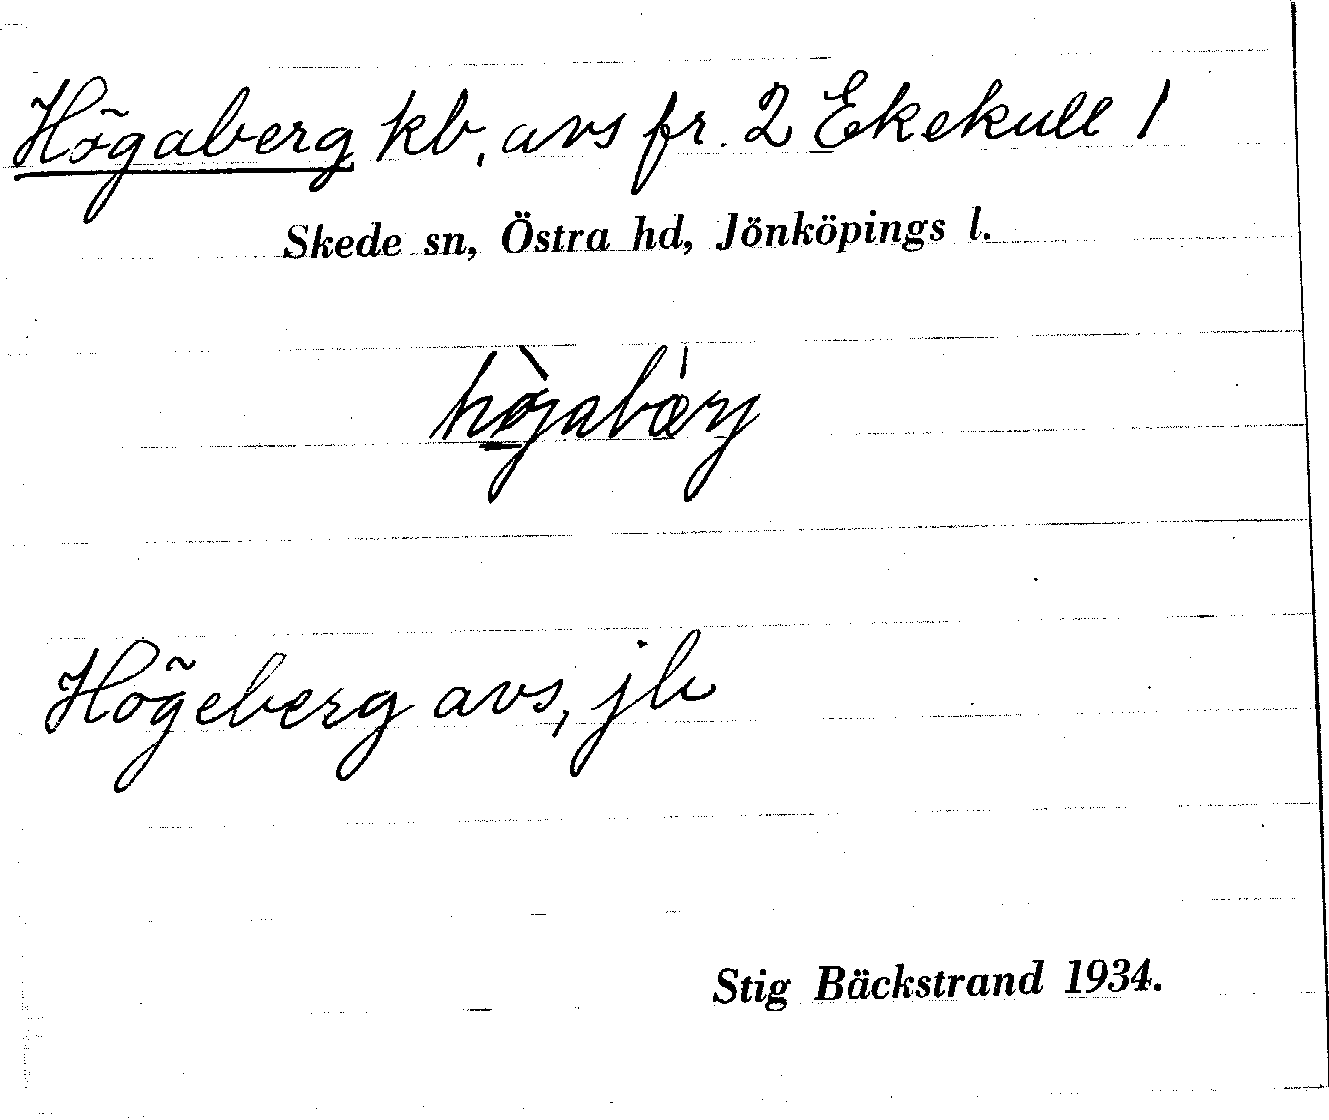 Högaberg kb, avs fr. 2 Ekekull 1
Skede sn, Östra hd, Jönköpings l.
hø̀gabæ̍rj
Högeberg avs, jb
Stig Bäckstrand 1934.